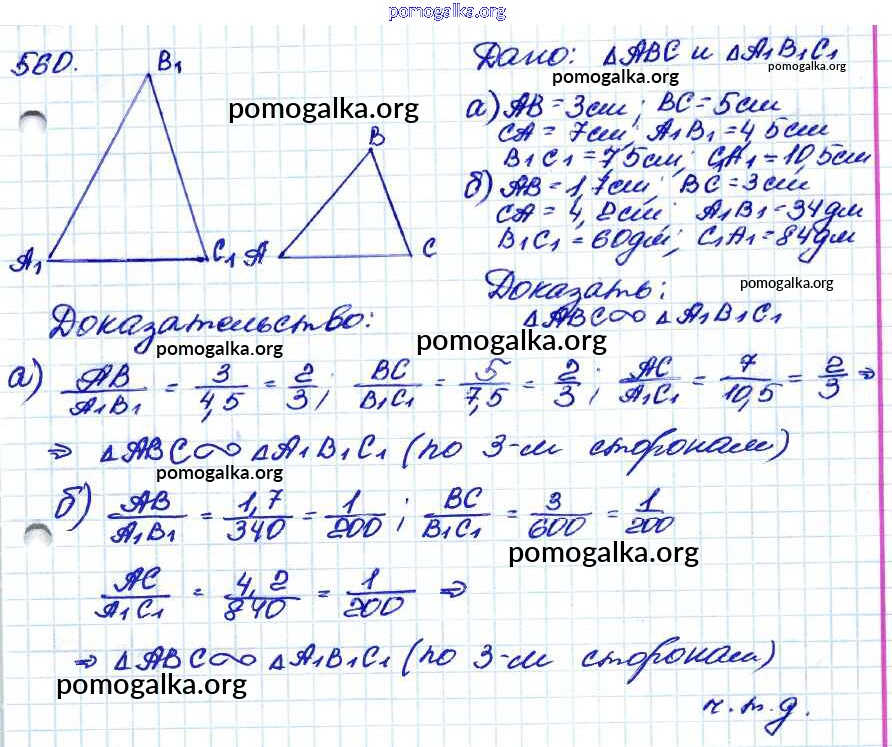 pomogalka.org
560.
B₁
A₁
C₁
pomogalka.org
B
A
C
Дано: △ABC и △A₁B₁C₁
pomogalka.org
pomogalka.org
а) AB = 3см; BC = 5см
CA = 7см; A₁B₁ = 4,5см
B₁C₁ = 7,5см; C₁A₁ = 10,5см
б) AB = 1,7см; BC = 3см;
CA = 4,2см; A₁B₁ = 34дм
B₁C₁ = 60дм; C₁A₁ = 84дм
pomogalka.org
Доказать:
△ABC∞△A₁B₁C₁
Доказательство:
pomogalka.org
pomogalka.org
а) AB/A₁B₁ = 3/4,5 = 2/3; BC/B₁C₁ = 5/7,5 = 2/3; AC/A₁C₁ = 7/10,5 = 2/3 ⇒
⇒ △ABC∞△A₁B₁C₁ (по 3-м сторонам)
pomogalka.org
б) AB/A₁B₁ = 1,7/340 = 1/200; BC/B₁C₁ = 3/600 = 1/200
pomogalka.org
AC/A₁C₁ = 4,2/840 = 1/200 ⇒
⇒ △ABC∞△A₁B₁C₁ (по 3-м сторонам)
pomogalka.org
ч.т.д.